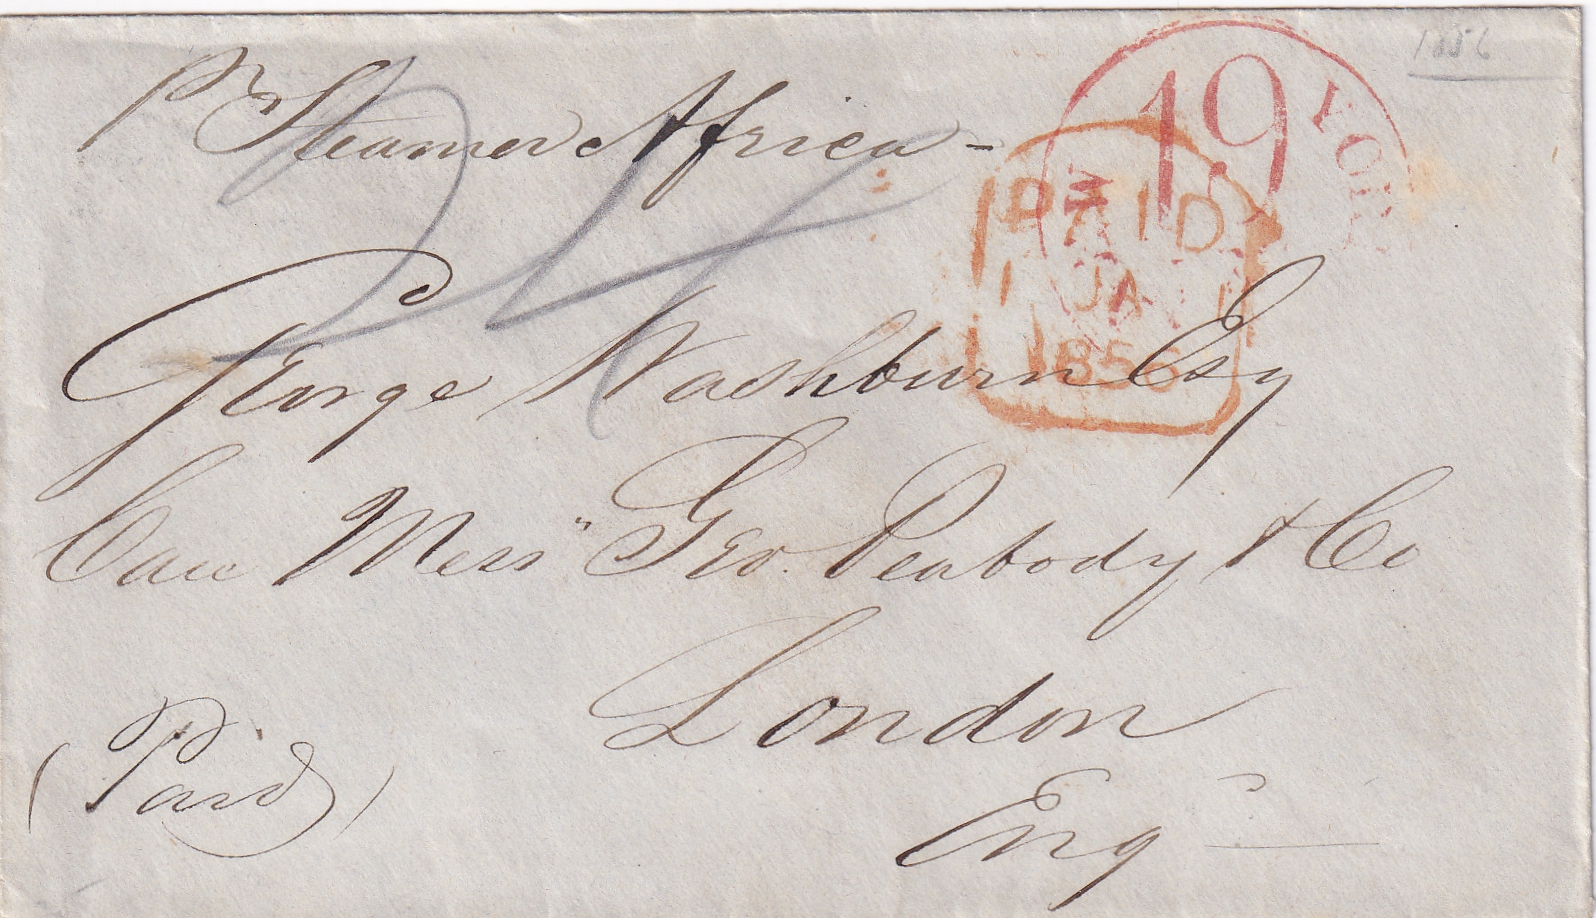 1856
pr Steamer Africa -
24
19
YORK
PAID
JA
1856
George Washburn Esq
Care Messrs Geo. Peabody & Co
London
Eng
(Paid)